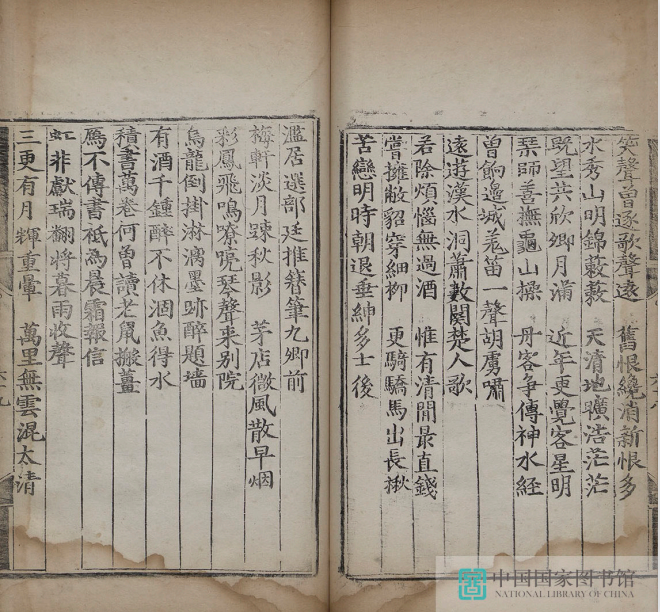 笑聲曾逐歌聲遠　舊恨纔消新恨多
水秀山明錦蔌蔌　天清地曠浩茫茫
既望共欣卿月滿　近年更覺客星明
琹師善撫龜山操　丹客争傳神水經
曾餉邊城羗笛一聲胡虜嘯
遠遊漢水洞簫數闋楚人歌
若除煩惱無過酒　惟有清閒最直錢
嘗擁敝貂穿細柳　更騎驕馬出長楸
苦戀明時朝退垂紳多士後
濫居選部廷推簪筆九卿前
梅軒淡月踈秋影　茅店微風散早烟
彩鳳飛鳴嘹喨琹聲来别院
烏龍倒掛淋漓墨跡醉題墻
有酒千鍾醉不休涸魚得水
積書萬卷何曾讀老鼠搬薑
鴈不傳書祗為晨霜報信
虹非獻瑞翻將暮雨收聲
三更有月輝重暈　萬里無雲混太清
中国国家图书馆
NATIONAL LIBRARY OF CHINA